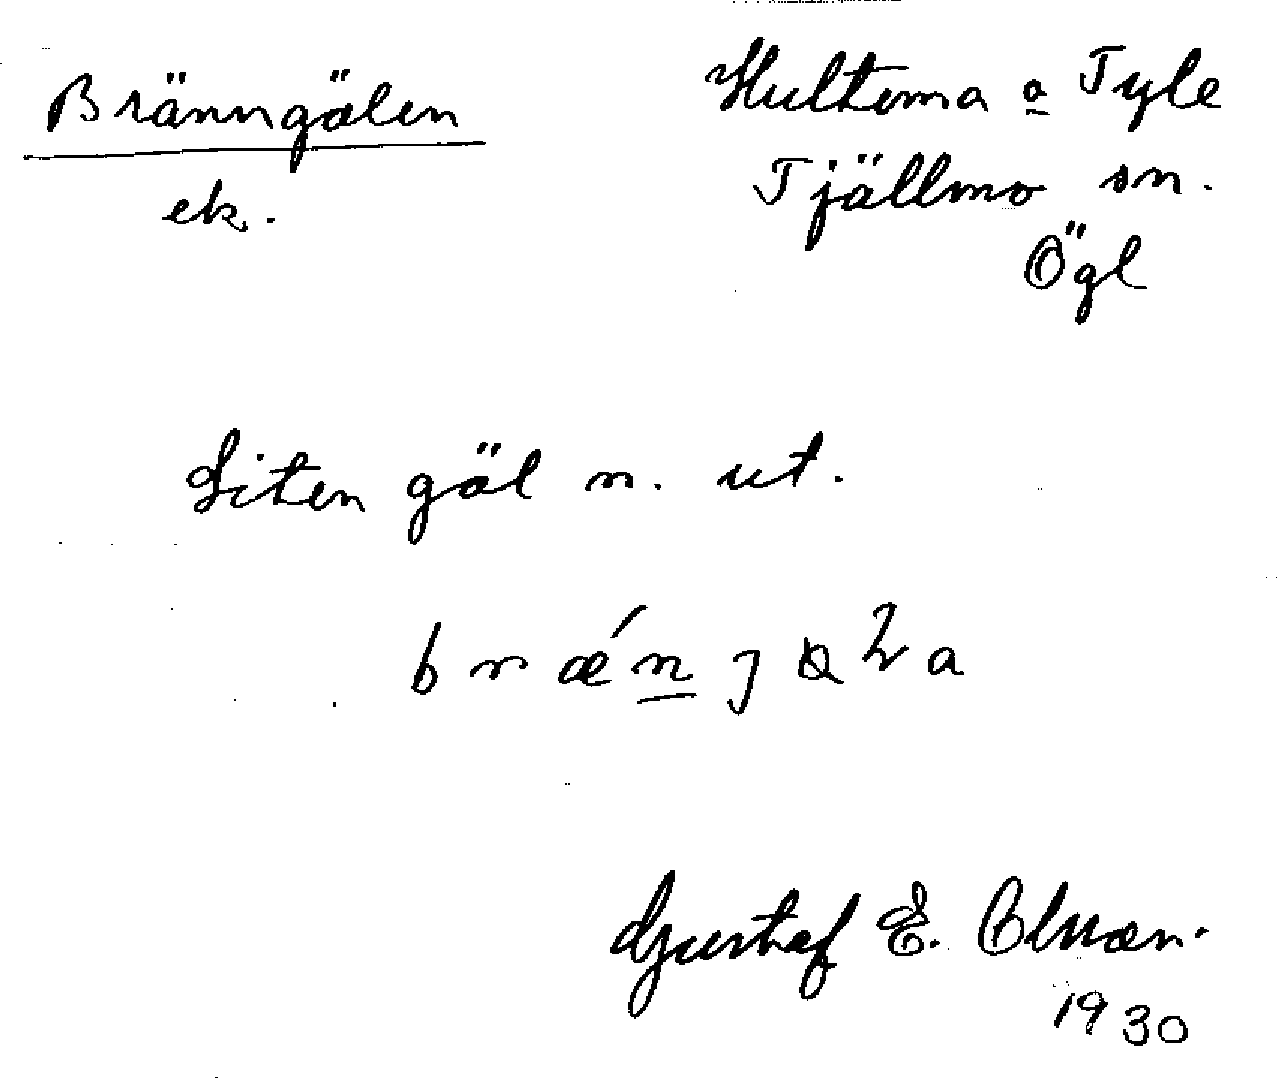 Bränngölen
ek.
Hultema a Tyle
Tjällmo sn.
Ögl
Liten göl n. ut.
Gustaf E. Olsson.
1930